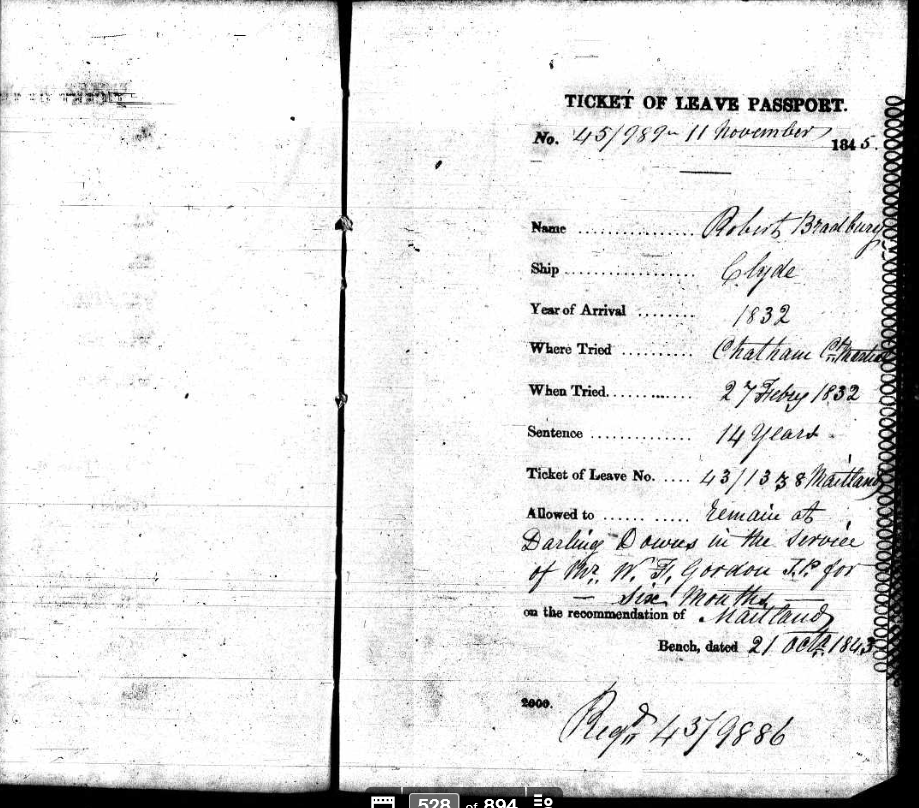 TICKET OF LEAVE PASSPORT.
No. 45/989 11 November 1845.
Name .................. Robert Bradbury
Ship .................... Clyde
Year of Arrival ........ 1832
Where Tried .......... Chatham Ct. Martial
When Tried............... 27 Febry 1832
Sentence .............. 14 Years
Ticket of Leave No. ..... 43/1338 Maitland
Allowed to ...... ...... remain at
Darling Downs in the service
of Mr. W. F. Gordon J.P. for
— Six Months —
on the recommendation of Maitland
Bench, dated 21 Octr. 1843
2000.
Regd 43/9886
528 of 894